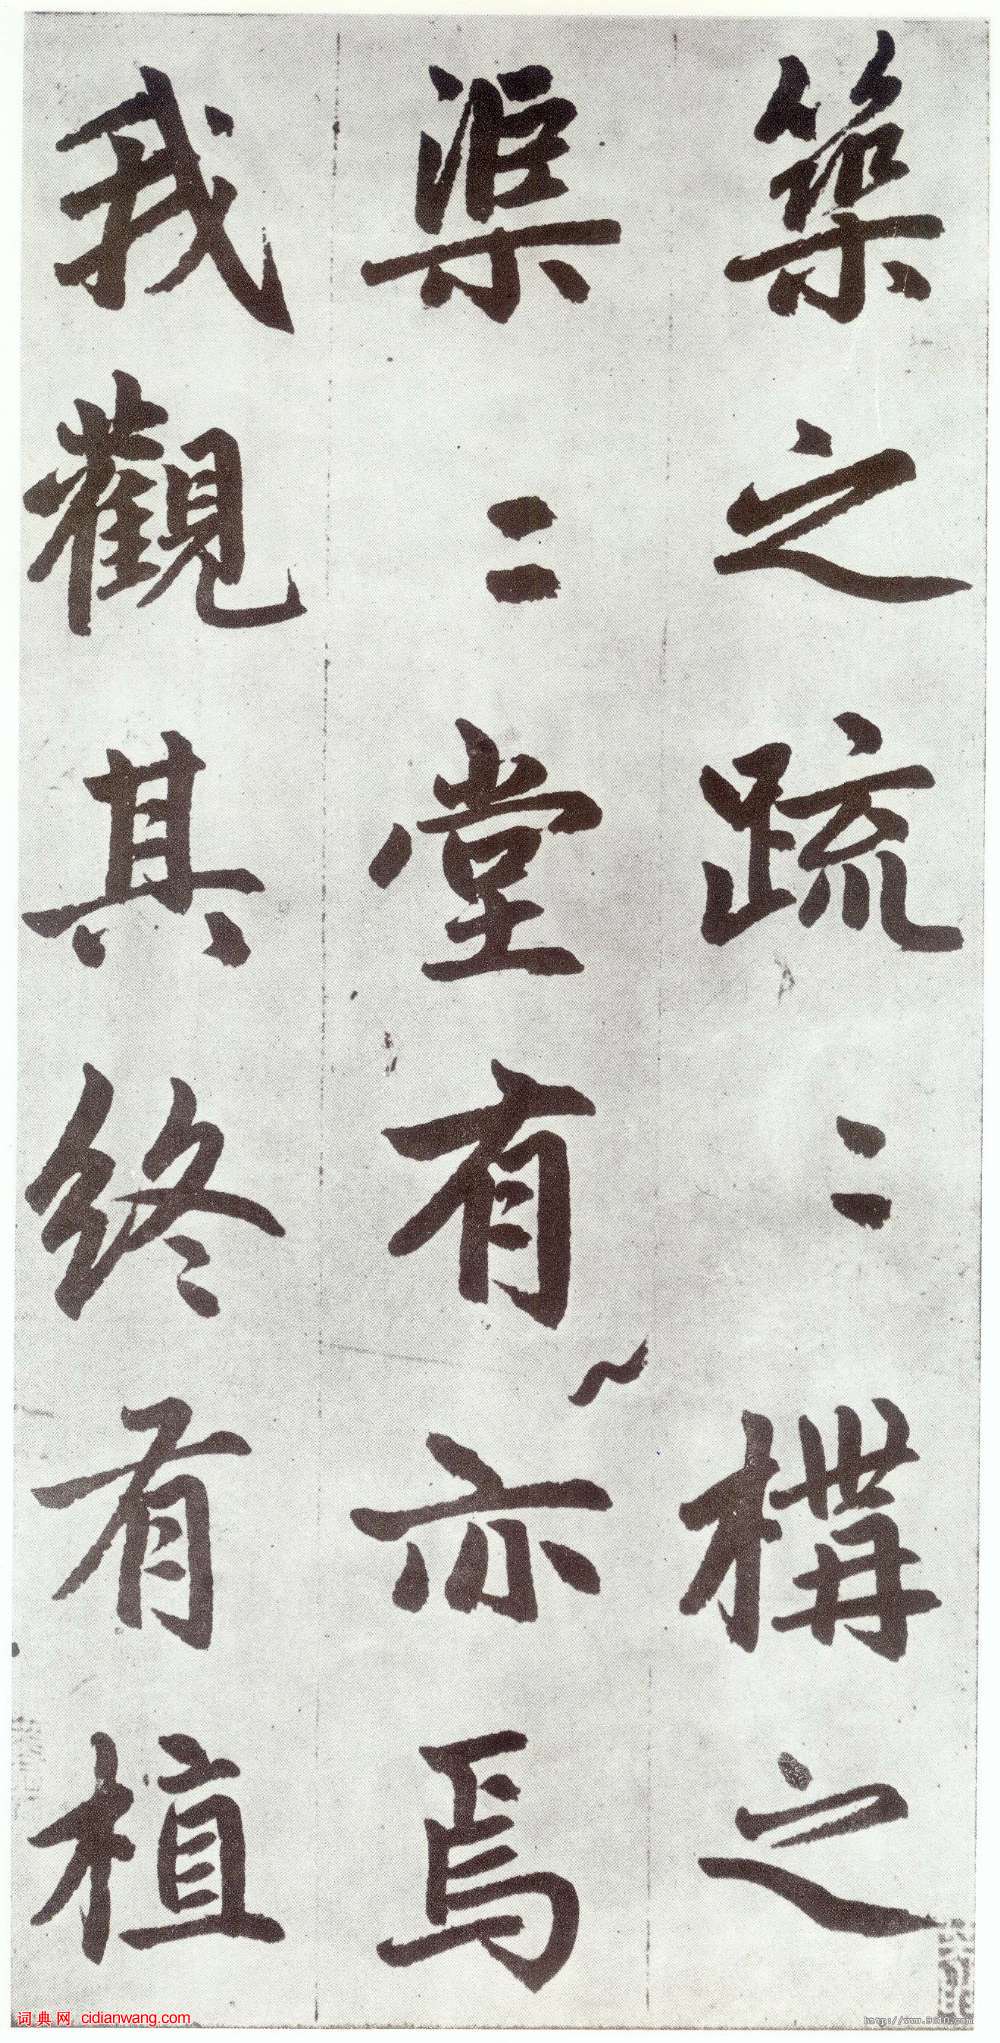 築之疏〻構之
渠〻堂有亦焉
我觀其終有植
词典网 cidianwang.com